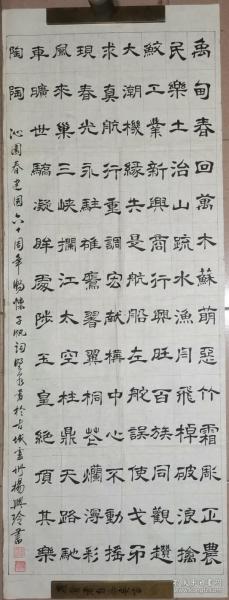 禹甸春回萬木蘇萌惡竹霜彫正農
民樂土治山疏水漁閂飛棹破浪擒
蛟工業新興商行興旺百族同觀趕
大潮機緣共是航船左舵誤使戈
求真航行重調宏猷構中心不動搖
現春光永駐雄鷹翼桐花爛漫彩
風來巢三峽攔江太空柱鼎天路馳
車曠世驕凝眸處陟玉皇絕頂其樂
陶陶
沁園春建國六十周年暢懷子帆詞書於古城青州楊興玲書